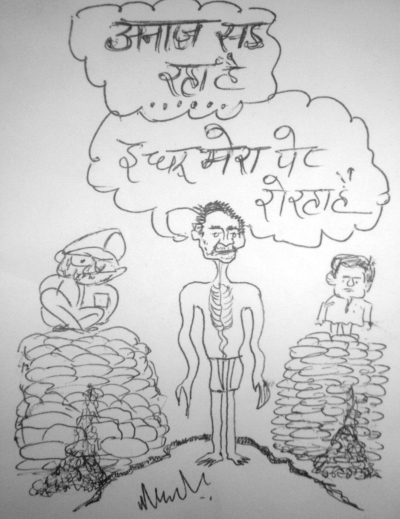 अनाज सड़
रहा है
इधर मेरा पेट
रो रहा है